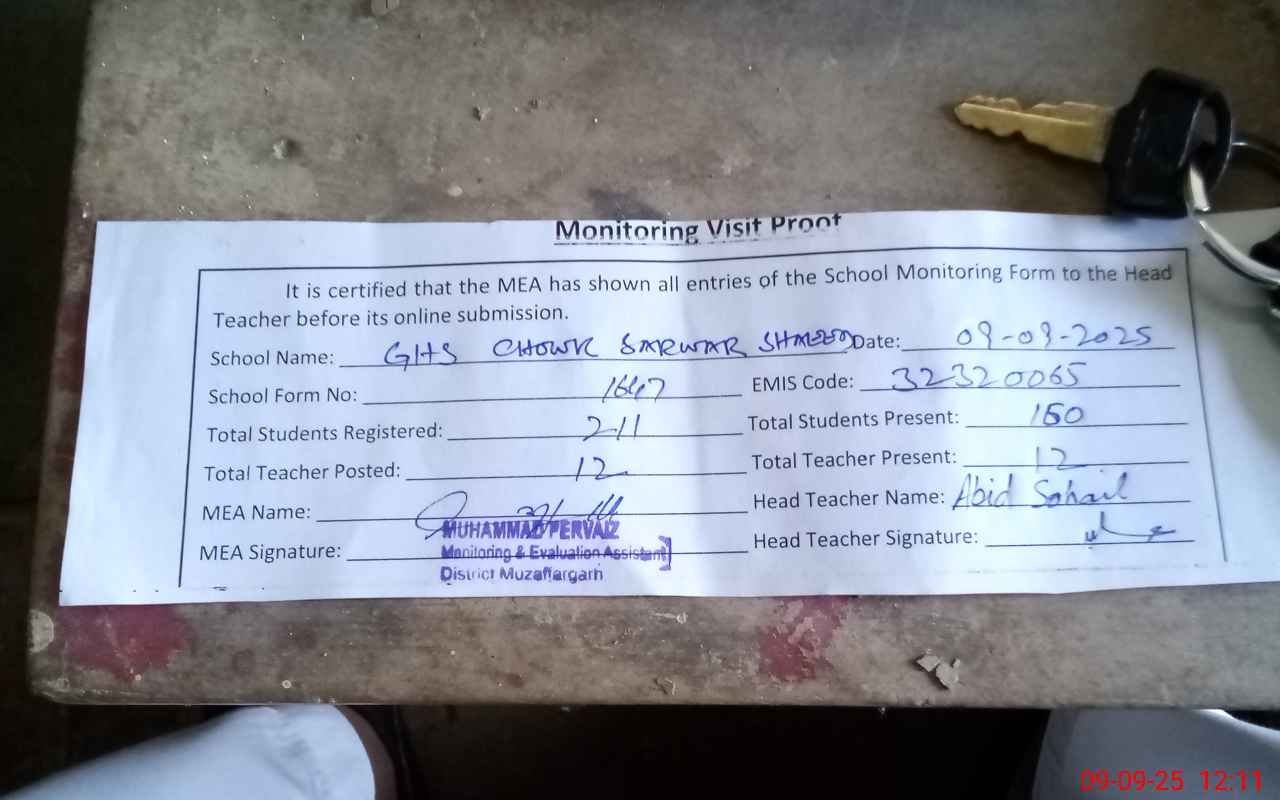 Monitoring Visit Proof
It is certified that the MEA has shown all entries of the School Monitoring Form to the Head
Teacher before its online submission.
School Name: GHS CHOWK SARWAR SHAHEED Date: 09-09-2025
School Form No: 1647 EMIS Code: 32320065
Total Students Registered: 211 Total Students Present: 160
Total Teacher Posted: 12 Total Teacher Present: 12
MEA Name: Head Teacher Name: Abid Sohail
MUHAMMAD PERVAIZ
MEA Signature: Monitoring & Evaluation Assistant Head Teacher Signature:
District Muzaffargarh
09-09-25 12:11